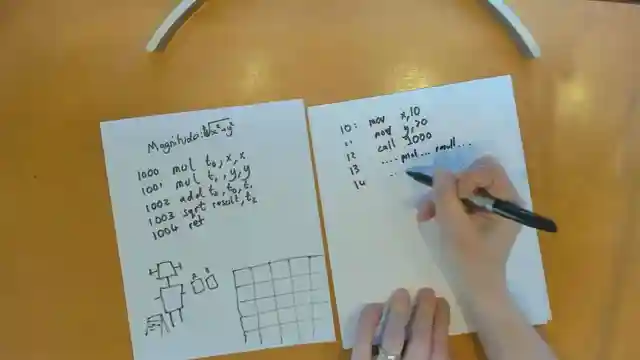 Magnitude: √x²+y²
1000 mul t₀, x, x
1001 mul t₁, y, y
1002 add t₂, t₀, t₁
1003 sqrt result, t₂
1004 ret
A B
10: mov x, 10
11 mov y, 20
12 call 1000
13 .... print ... result ...
14 ..